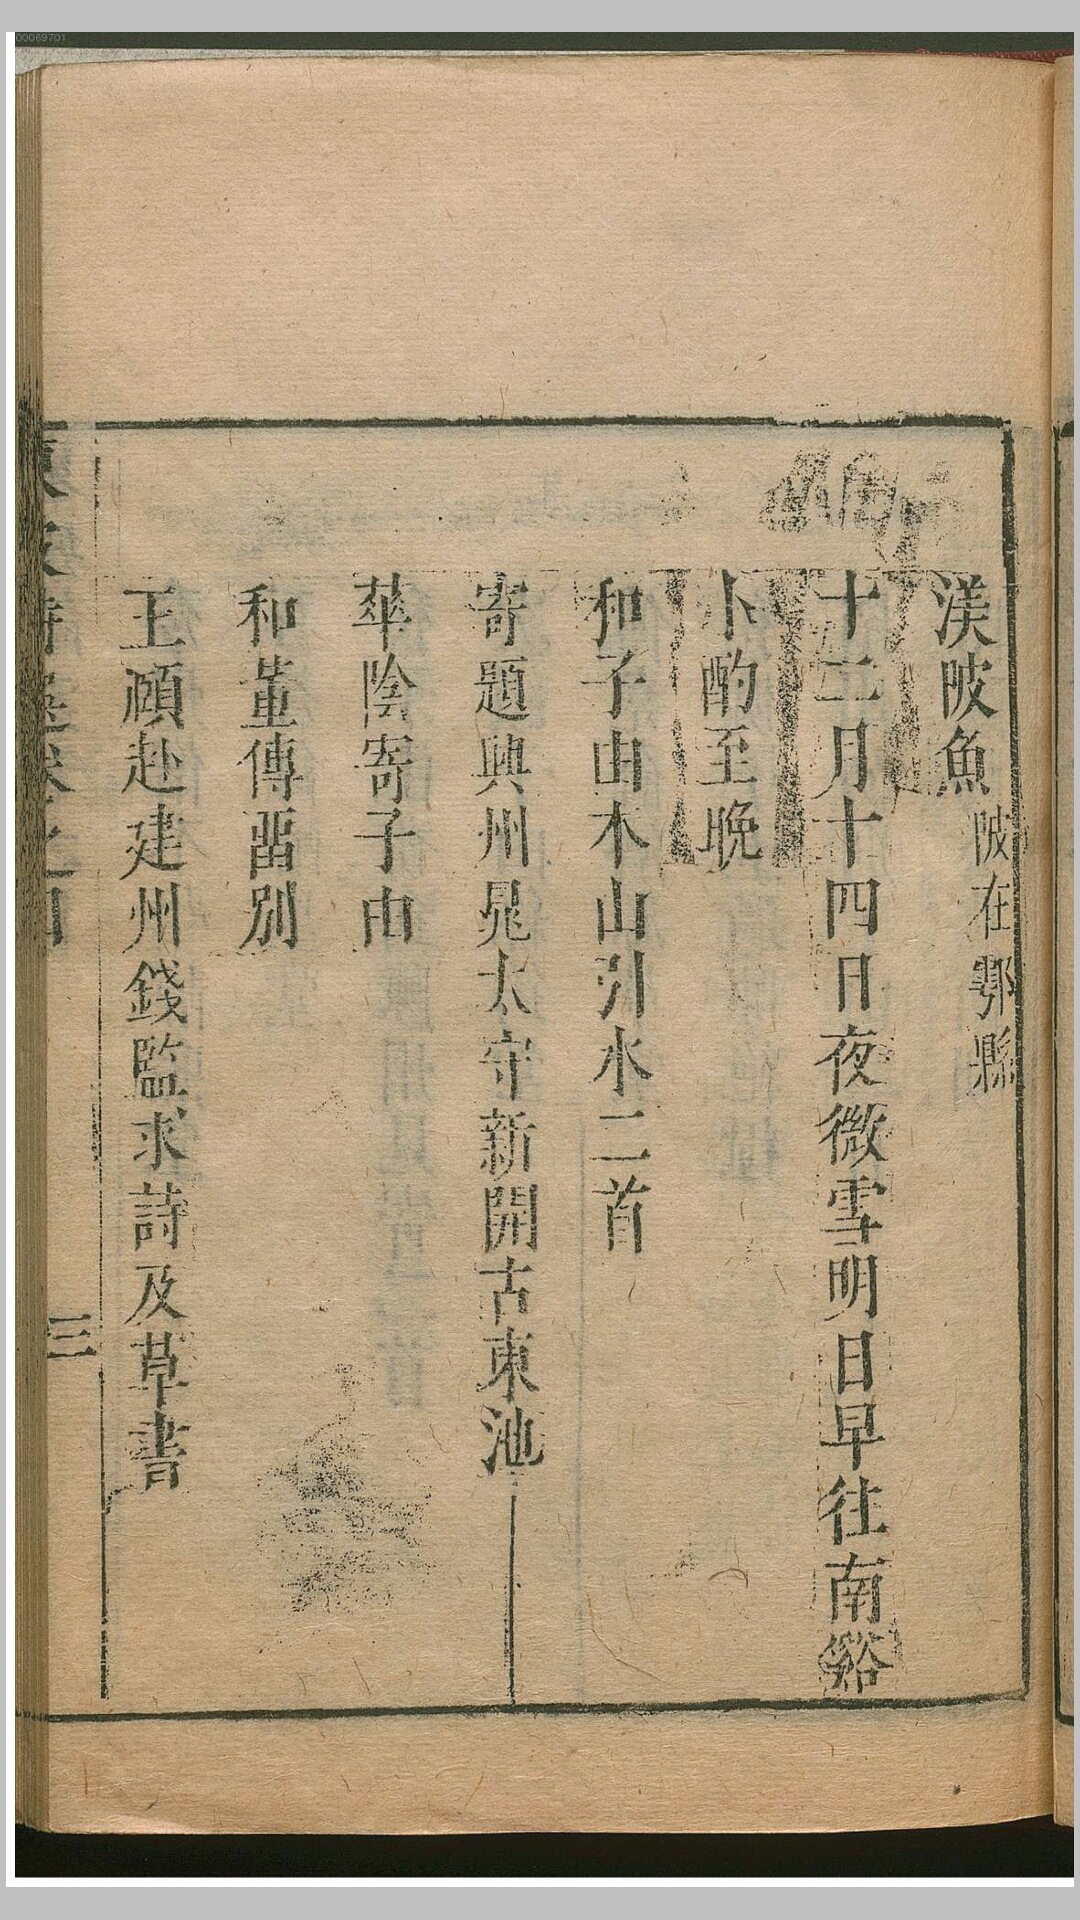 00069701
渼陂魚 陂在鄠縣
十二月十四日夜微雪明日早往南谿
小酌至晚
和子由木山引水二首
寄題興州晁太守新開古東池
華陰寄子由
和董傳畱別
王頤赴建州錢監求詩及草書
三